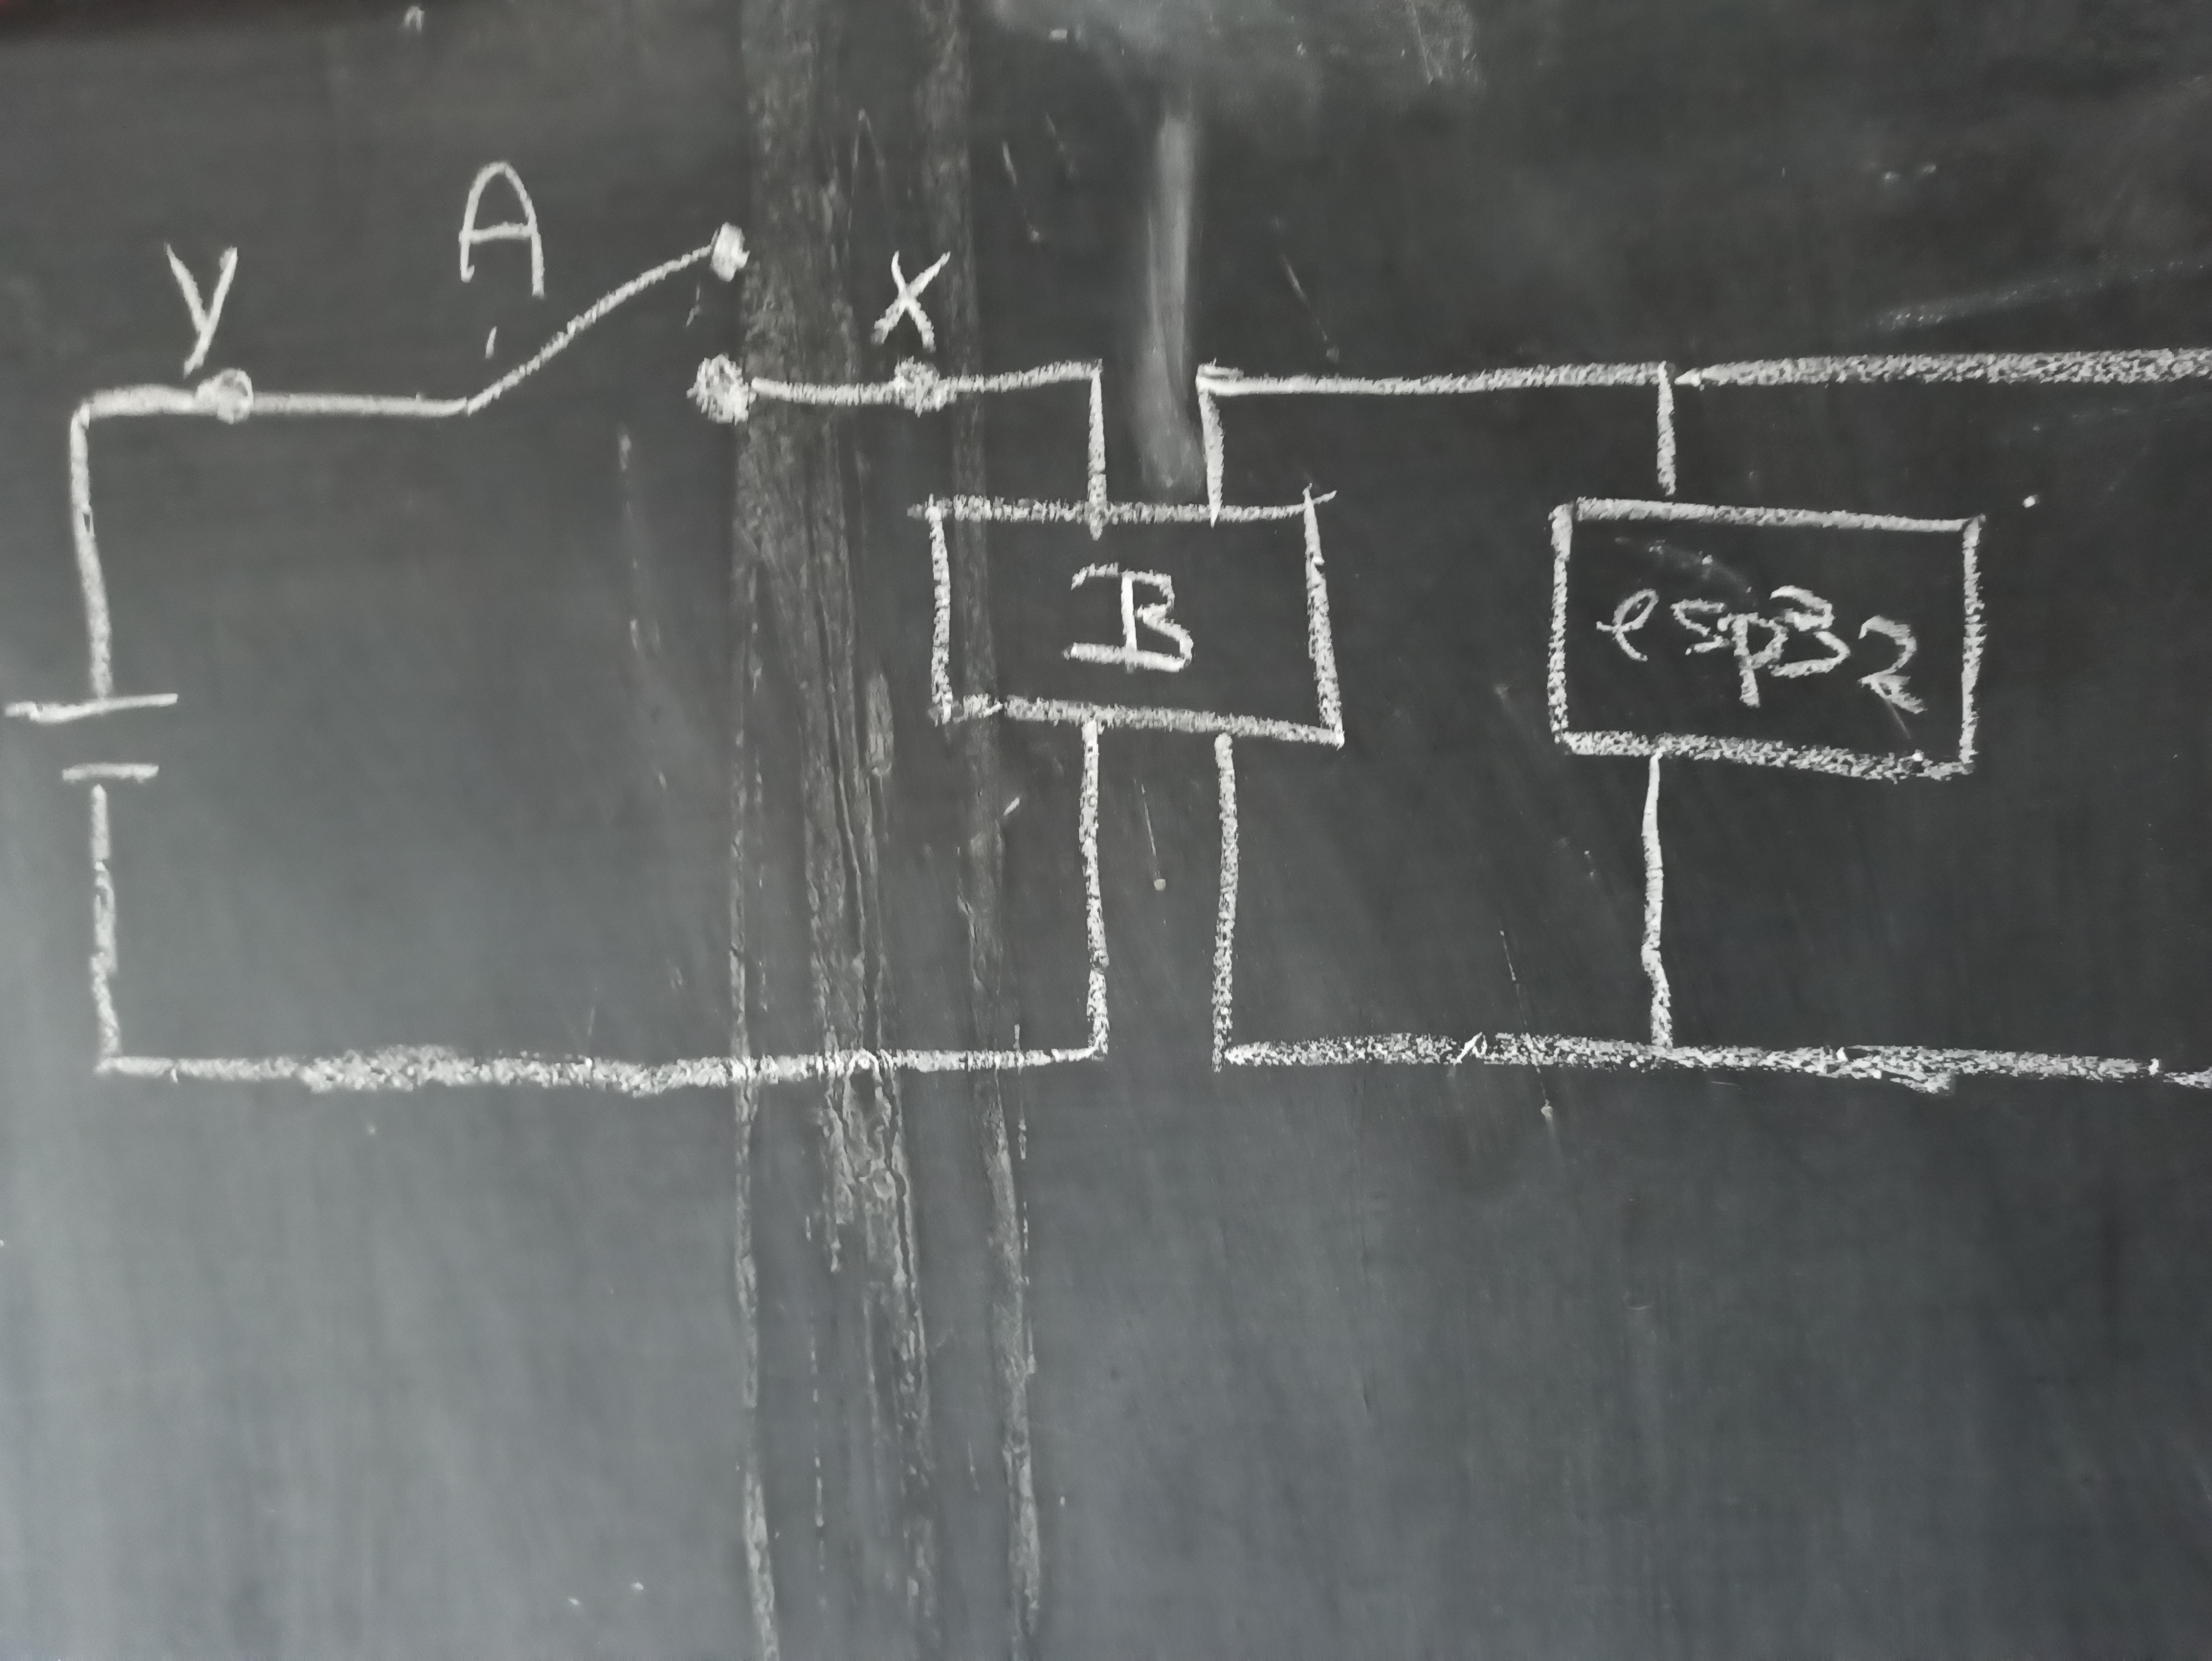 Y
A
X
B
esp32